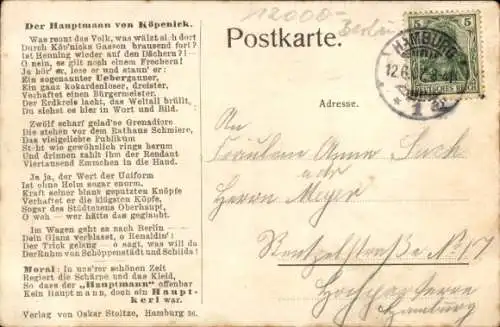 Der Hauptmann von Köpenick.
Was rennt das Volk, was wälzt sich dort
Durch Köp'nicks Gassen brausend fort?
Ist Henning wieder auf den
Dächern? —
O nein, es gilt noch einem Frechern!
Ja hör' es, lese er und staun' er:
Ein sogenannter Ueberganner,
Ein ganz kokardenloser, dreister,
Verhaftet einen Bürgermeister.
Der Erdkreis lacht, das Weltall brüllt,
Du siehst es hier in Wort und Bild.
Zwölf scharf gelad'ne Grenadiere
Die stehen vor dem Rathaus Schmiere,
Das vielgeliebte Publikum
Steht wie gewöhnlich rings herum
Und drinnen zählt ihm der Rendant
Viertausend Emmchen in die Hand.
Ja ja, der Wert der Uniform
Ist ohne Helm sogar enorm,
Kraft seiner blank geputzten Knöpfe
Verhaftet er die klügsten Köpfe,
Sogar des Städtchens Oberhaupt,
O weh — wer hätte das geglaubt.
Im Wagen geht es nach Berlin —
Dein Glanz verblasst, o Renaldin'!
Der Trick gelang — o sagt, was will da
Der Ruhm von Schöppenstädt und Schilda!
Moral: In uns'rer schönen Zeit
Regiert die Schärpe und das Kleid,
So dass der „Hauptmann" offenbar
Kein Hauptmann, doch ein Haupt-
kerl war.
Verlag von Oskar Stoltze, Hamburg 36.
12000-
Berlin
Postkarte.
K 5 5
HAMBURG
12.6.
* 1 *
DEUTSCHES REICH
Adresse.
An
Fräulein Anna Such
adr
Herrn Meyer
Rentzelstraße No 17
Hochparterre
Hamburg